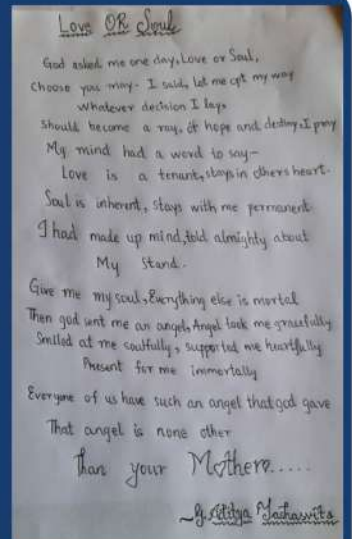 Love OR Soul
God asked me one day, Love or Soul,
Choose you may. I said, let me opt my way
Whatever decision I lay,
Should become a ray, of hope and destiny, I pray
My mind had a word to say-
Love is a tenant, stays in others heart.
Soul is inherent, stays with me permanent.
I had made up mind, told almighty about
My stand.
Give me my soul, Everything else is mortal
Then god sent me an angel, Angel took me gracefully
Smiled at me soulfully, supported me heartfully
Present for me immortally
Everyone of us have such an angel that god gave
That angel is none other
Than your Mother.....
Aditya